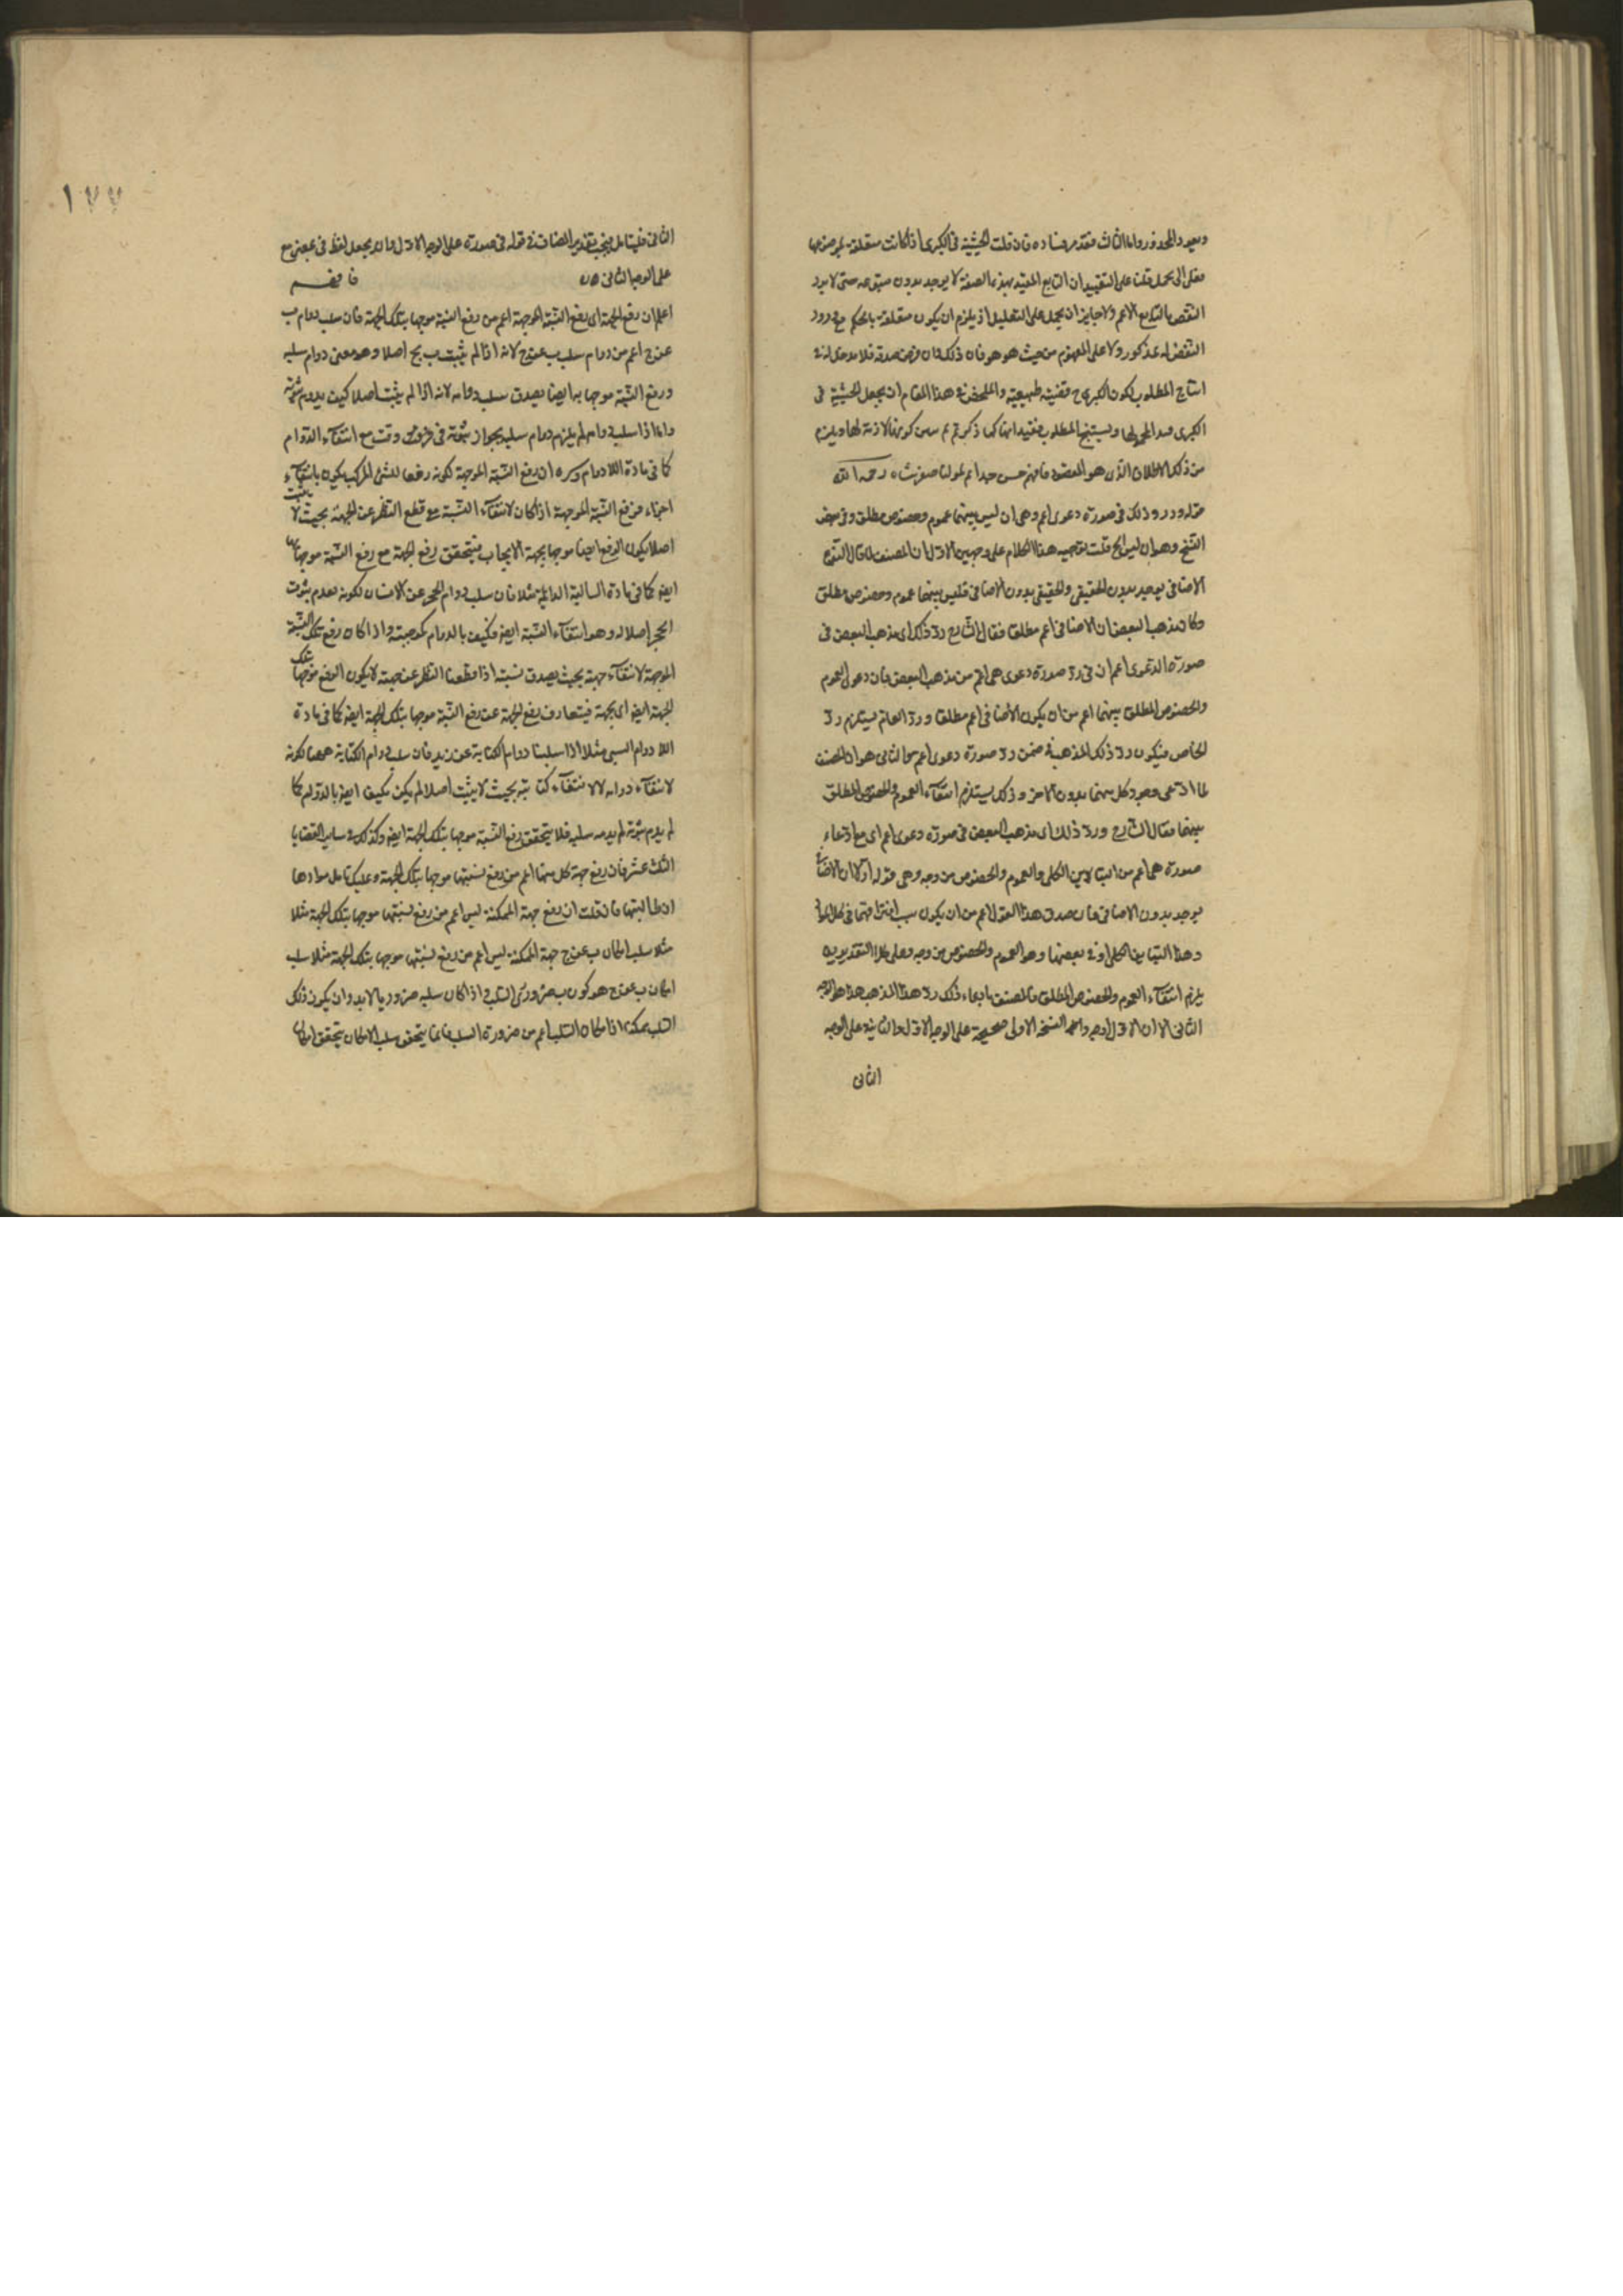 ويعود المحذور واما الثالث فقد مر فساده فان قلت الحيثية في الكبرى اذا كانت متعلقة
على التقييد ان التابع المقيد بهذه الصفة لا يوجد بدون متبوعه حتى لا يرد
النقض بالتابع الاعم ولا جايز ان يحمل على التعليل اذ يلزم ان يكون متعلقة بالحكم مع ورود
النقض المذكور ولا على المفهوم من حيث هو هو فان ذلك وان فرض صدقه فلا مدخل له في
انتاج المطلوب لكون الكبرى ح قضية طبيعية والملخص في هذا المقام ان يجعل الحيثية في
الكبرى لمحمولها ويستنتج المطلوب مقيدا بها كما ذكرتم كونها لازمة لها ويلزم
من ذلك الاطلاق الذي هو المقصود فافهم حسن جدا لمولنا صفر شاه رحمه الله
قوله ورد ذلك في صورة دعوى اعم وهي ان ليس بينهما عموم وخصوص مطلق وفي بعض
النسخ وهو ان ليس الخ قلت توجيه هذا الكلام على وجهين الاول ان المصنف لما قال النوع
الاضافي يوجد بدون الحقيقي والحقيقي بدون الاضافي فليس بينهما عموم وخصوص مطلق
وكان مذهب البعض ان الاضافي اعم مطلقا فقال الشارح رد ذلك اي مذهب البعض في
صورة الدعوى اعم ان في رد صورة دعوى هي اعم من مذهب البعض فان دعوى العموم
والخصوص المطلق بينهما اعم من ان يكون الاضافي اعم مطلقا ورد العام يستلزم رد
الخاص فيكون رد ذلك المذهب في ضمن رد صورة دعوى اعم والثاني هو ان المصنف
لما ادعى وجود كل منهما بدون الاخر وذلك يستلزم انتفاء العموم والخصوص المطلق
بينهما فقال الشارح ورد ذلك اي مذهب البعض في صورة دعوى اعم اي مع ادعاء
صورة هي اعم من التباين الكلي والعموم والخصوص من وجه وهي قوله اولا ان الاضافي
يوجد بدون الاضافي فان صدق هذا القول اعم من ان يكون سبب افتراقهما في كل المواد
وهذا التباين الكلي او في بعضها وهو العموم والخصوص من وجه وعلى كلا التقديرين
يلزم انتفاء العموم والخصوص المطلق فالمصنف بادعاء ذلك رد هذا المذهب هذا هو الوجه
الثاني الا ان الاول اوجه واعلم النسخة الاولى صحيحة على الوجه الاول والثانية على الوجه
الثاني
١٧٧
الثاني فليتامل فيجب تقدير المضاف في قوله في صورة على الوجه الاول وان يجعل لفظ في بمعنى مع
على الوجه الثاني فافهم
اعلم ان رفع الجهة اي رفع النسبة الموجهة اعم من رفع النسبة موجها بتلك الجهة فان سلب دوام ب
عن ج اعم من دوام سلب ب عن ج لانه اذا لم يثبت ب لج اصلا وهو معنى دوام سلبه
ورفع النسبة موجها بها ايضا يصدق سلب دوامه لانه اذا لم يثبت اصلا كيف يدوم ثبوته
واما اذا سلب دوامه لم يلزم دوام سلبه لجواز ثبوته في وقت مع انتفاء الدوام
كما في مادة اللادوام ان رفع النسبة الموجهة لكونه رفعا للشيء المركب يكون بانتفاء
اجزاء فرفع النسبة الموجهة اذا كان لانتفاء النسبة مع قطع النظر عن الجهة بحيث لا يثبت
اصلا يكون الرفع ايضا موجها بجهة الايجاب فيتحقق رفع الجهة مع رفع النسبة موجها بها
ايضا كما في مادة السالبة الدايمة مثلا فان سلب دوام الحجر عن الانسان لكونه لعدم ثبوت
الحجر اصلا له وهو انتفاء النسبة ايضا فكيف بالدوام كموجبته واذا كان رفع تلك النسبة
الموجهة لانتفاء جهته بحيث يصدق نسبته اذا قطعنا النظر عن جهته لا يكون الرفع موجها بتلك
الجهة ايضا اي بجهة فيتعارف رفع الجهة عن رفع النسبة موجها بتلك الجهة ايضا كما في مادة
اللادوام السبي مثلا اذا سلبنا دوام الكتابة عن زيد فان سلب دوام الكتابة ههنا لكونه
لانتفاء دوامه لا لانتفاء كتابته بحيث لا يثبت اصلا لم يكن يكيف ايضا بالدوام كما
لم يدم ثبوته لم يدم سلبه فلا يتحقق رفع النسبة موجها بتلك الجهة ايضا وكذلك في ساير القضايا
الثلث عشر فان رفع جهة كل منها اعم من رفع نسبتها موجها بتلك الجهة وعليك تامل موادها
ان طالبتها فان قلت ان رفع جهة الممكنة ليس اعم من رفع نسبتها موجها بتلك الجهة مثلا
مثلا سلب امكان ب عن ج جهة الممكنة ليس اعم من رفع نسبتها موجها بتلك الجهة مثلا سلب
امكان ب عن ج هو كون ب ضروري السلب واذا كان سلبه ضروريا لابد وان يكون ذلك
السلب ممكنا اذ امكان السلب اعم من ضرورة السلب فاينما يتحقق سلب الامكان يتحقق امكان